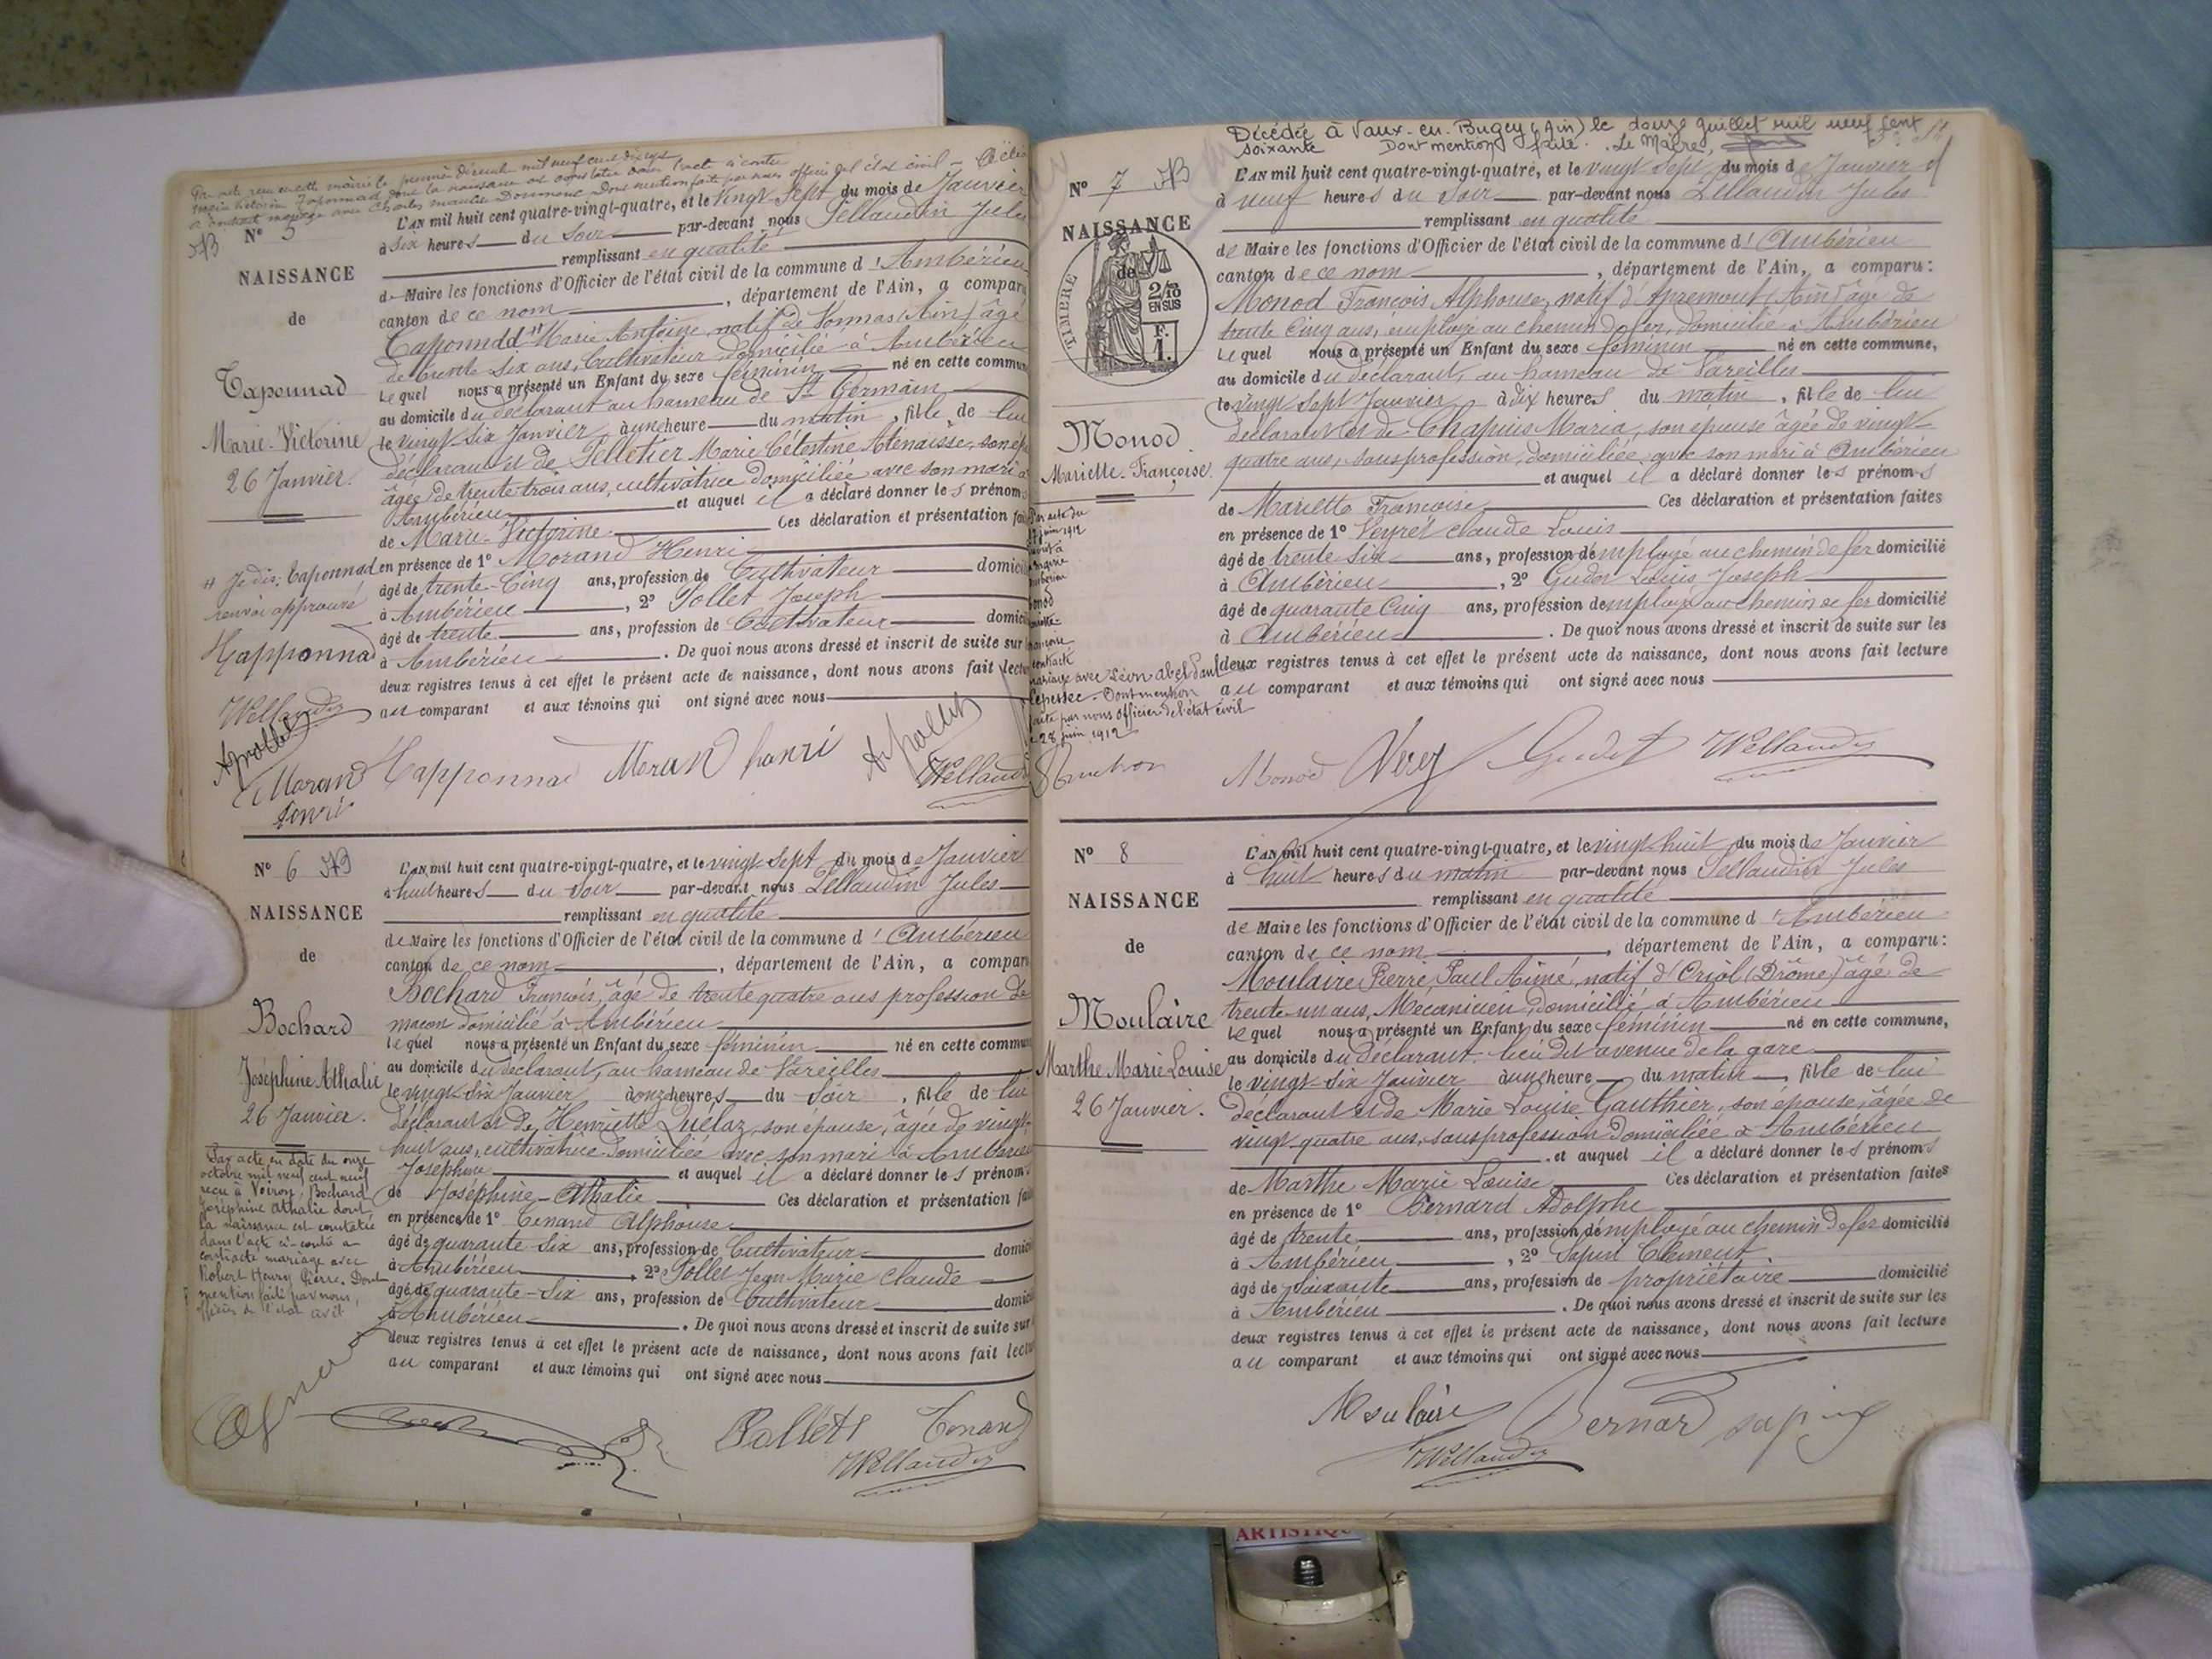 Par acte reçu en cette mairie le premier Décembre mil neuf cent dix sept
Marie Victorine Taponnad dont la naissance est constatée dans l'acte ci contre
a contracté mariage avec Charles Dont mention faite par nous officier de l'état civil
N° 5
NAISSANCE
de
Taponnad
Marie-Victorine
26 Janvier.
L'AN mil huit cent quatre-vingt-quatre, et le vingt-sept du mois de Janvier
à six heures du soir par-devant nous Pellaudin Jules
remplissant en qualité
de Maire les fonctions d'Officier de l'état civil de la commune d'Ambérieu
canton de ce nom, département de l'Ain, a comparu
Taponndd Marie Antoine, natif de Vonnas (Ain) âgé
de trente six ans, Cultivateur domicilié à Ambérieu
lequel nous a présenté un Enfant du sexe féminin né en cette commune
au domicile du déclarant au hameau de St Germain
le vingt-six Janvier, à une heure du matin, fille de lui
déclarant et de Pelletier Marie Célestine Aténaisse, son ép
âgée de trente trois ans, cultivatrice domiciliée avec son mari à
Ambérieu et auquel il a déclaré donner les prénoms
de Marie-Victorine Ces déclaration et présentation fai
en présence de 1° Morand Henri
âgé de trente-Cinq ans, profession de Cultivateur domicil
à Ambérieu, 2° Pollet Joseph
âgé de trente ans, profession de Cultivateur domicil
à Ambérieu. De quoi nous avons dressé et inscrit de suite sur
deux registres tenus à cet effet le présent acte de naissance, dont nous avons fait lectu
au comparant et aux témoins qui ont signé avec nous
Je dis: Taponnad
renvoi approuvé
Tapponnad
Pellaudin
Moran
henri
Tapponnad Moran henri
Pellaudin
N° 6
NAISSANCE
de
Bochard
Joséphine Athalie
26 Janvier.
L'AN mil huit cent quatre-vingt-quatre, et le vingt-sept du mois de Janvier
à huit heures du soir par-devant nous Pellaudin Jules
remplissant en qualité
de Maire les fonctions d'Officier de l'état civil de la commune d'Ambérieu
canton de ce nom, département de l'Ain, a comparu
Bochard François, âgé de trente quatre ans profession de
maçon domicilié à Ambérieu
lequel nous a présenté un Enfant du sexe féminin né en cette commun
au domicile du déclarant, au hameau de Vareilles
le vingt-six Janvier à onze heures du soir, fille de lui
déclarant et de Henriette Quélaz, son épouse, âgée de vingt-
huit ans, cultivatrice domiciliée avec son mari à Ambérieu
Joséphine et auquel il a déclaré donner les prénoms
de Joséphine-Athalie Ces déclaration et présentation fai
en présence de 1° Tenand Alphonse
âgé de quarante-six ans, profession de Cultivateur domici
à Ambérieu, 2° Pollet Jean Marie Claude
âgé de quarante-six ans, profession de Cultivateur domici
à Ambérieu. De quoi nous avons dressé et inscrit de suite sur
deux registres tenus à cet effet le présent acte de naissance, dont nous avons fait lectu
au comparant et aux témoins qui ont signé avec nous
Par acte en date du onze
octobre mil neuf cent neuf
reçu à Voiron, Bochard
Joséphine Athalie dont
la naissance est constatée
dans l'acte ci-contre a
contracté mariage avec
Robert Henry Pierre. Dont
mention faite par nous,
officier de l'état civil
Pollet Tenand
Pellaudin
Décédée à Vaux-en-Bugey (Ain) le douze juillet mil neuf cent
soixante Dont mention faite. Le Maire,
N° 7
NAISSANCE
de
TIMBRE
2/10
EN SUS
F.
1.
Monod
Mariette-Françoise.
L'AN mil huit cent quatre-vingt-quatre, et le vingt sept du mois de Janvier
à neuf heures du soir par-devant nous Pellaudin Jules
remplissant en qualité
de Maire les fonctions d'Officier de l'état civil de la commune d'Ambérieu
canton de ce nom, département de l'Ain, a comparu:
Monod François Alphonse, natif d'Apremont (Ain) âgé de
trente Cinq ans, employé au chemin de fer, domicilié à Ambérieu
lequel nous a présenté un Enfant du sexe féminin né en cette commune,
au domicile du déclarant, au hameau de Vareilles
le vingt sept Janvier à dix heures du matin, fille de lui
déclarant et de Chapuis Maria, son épouse âgée de vingt-
quatre ans, sans profession, domiciliée avec son mari à Ambérieu
et auquel il a déclaré donner les prénoms
de Mariette Françoise Ces déclaration et présentation faites
en présence de 1° Veyret Claude Louis
âgé de trente six ans, profession d'employé au chemin de fer domicilié
à Ambérieu, 2° Gudet Louis Joseph
âgé de quarante Cinq ans, profession d'employé au chemin de fer domicilié
à Ambérieu. De quoi nous avons dressé et inscrit de suite sur les
deux registres tenus à cet effet le présent acte de naissance, dont nous avons fait lecture
au comparant et aux témoins qui ont signé avec nous
Par acte du
juin 1912
contracté
mariage avec Léon Abel Paul
Dont mention
faite par nous officier de l'état civil
28 juin 1912
Monod Gudet Pellaudin
N° 8
NAISSANCE
de
Moulaire
Marthe Marie Louise
26 Janvier.
L'AN mil huit cent quatre-vingt-quatre, et le vingt huit du mois de Janvier
à huit heures du matin par-devant nous Pellaudin Jules
remplissant en qualité
de Maire les fonctions d'Officier de l'état civil de la commune d'Ambérieu
canton de ce nom, département de l'Ain, a comparu:
Moulaire Pierre Paul Aimé, natif d'Oriol (Drôme) âgé de
trente-un ans, Mécanicien, domicilié à Ambérieu
lequel nous a présenté un Enfant du sexe féminin né en cette commune,
au domicile du déclarant lieu dit avenue de la gare
le vingt-six Janvier à une heure du matin, fille de lui
déclarant et de Marie Louise Gauthier, son épouse, âgée de
vingt-quatre ans, sans profession domiciliée à Ambérieu
et auquel il a déclaré donner les prénoms
de Marthe Marie Louise Ces déclaration et présentation faites
en présence de 1° Bernard Adolphe
âgé de trente ans, profession d'employé au chemin de fer domicilié
à Ambérieu, 2° Sapin Clément
âgé de soixante ans, profession de propriétaire domicilié
à Ambérieu. De quoi nous avons dressé et inscrit de suite sur les
deux registres tenus à cet effet le présent acte de naissance, dont nous avons fait lecture
au comparant et aux témoins qui ont signé avec nous
Moulaire Bernard Sapin
Pellaudin
ARTISTIQU